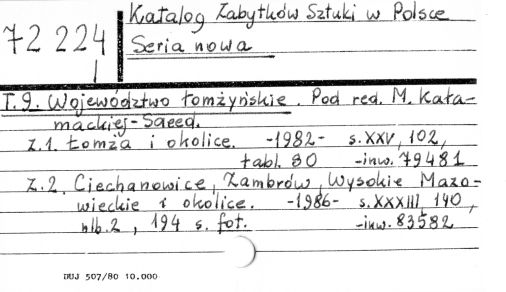 Katalog Zabytków Sztuki w Polsce
72 224
Seria nowa
T.9. Województwo łomżyńskie. Pod red. M. Kała-
mackiej-Saeed.
Z.1. Łomża i okolice. -1982- s.XXV, 102,
tabl. 80 -inw. 79481
Z.2. Ciechanowice, Zambrów, Wysokie Mazo-
wieckie i okolice. -1986- s.XXXIII, 140,
nlb.2, 194 s. fot. -inw. 83582
DUJ 507/80 10.000